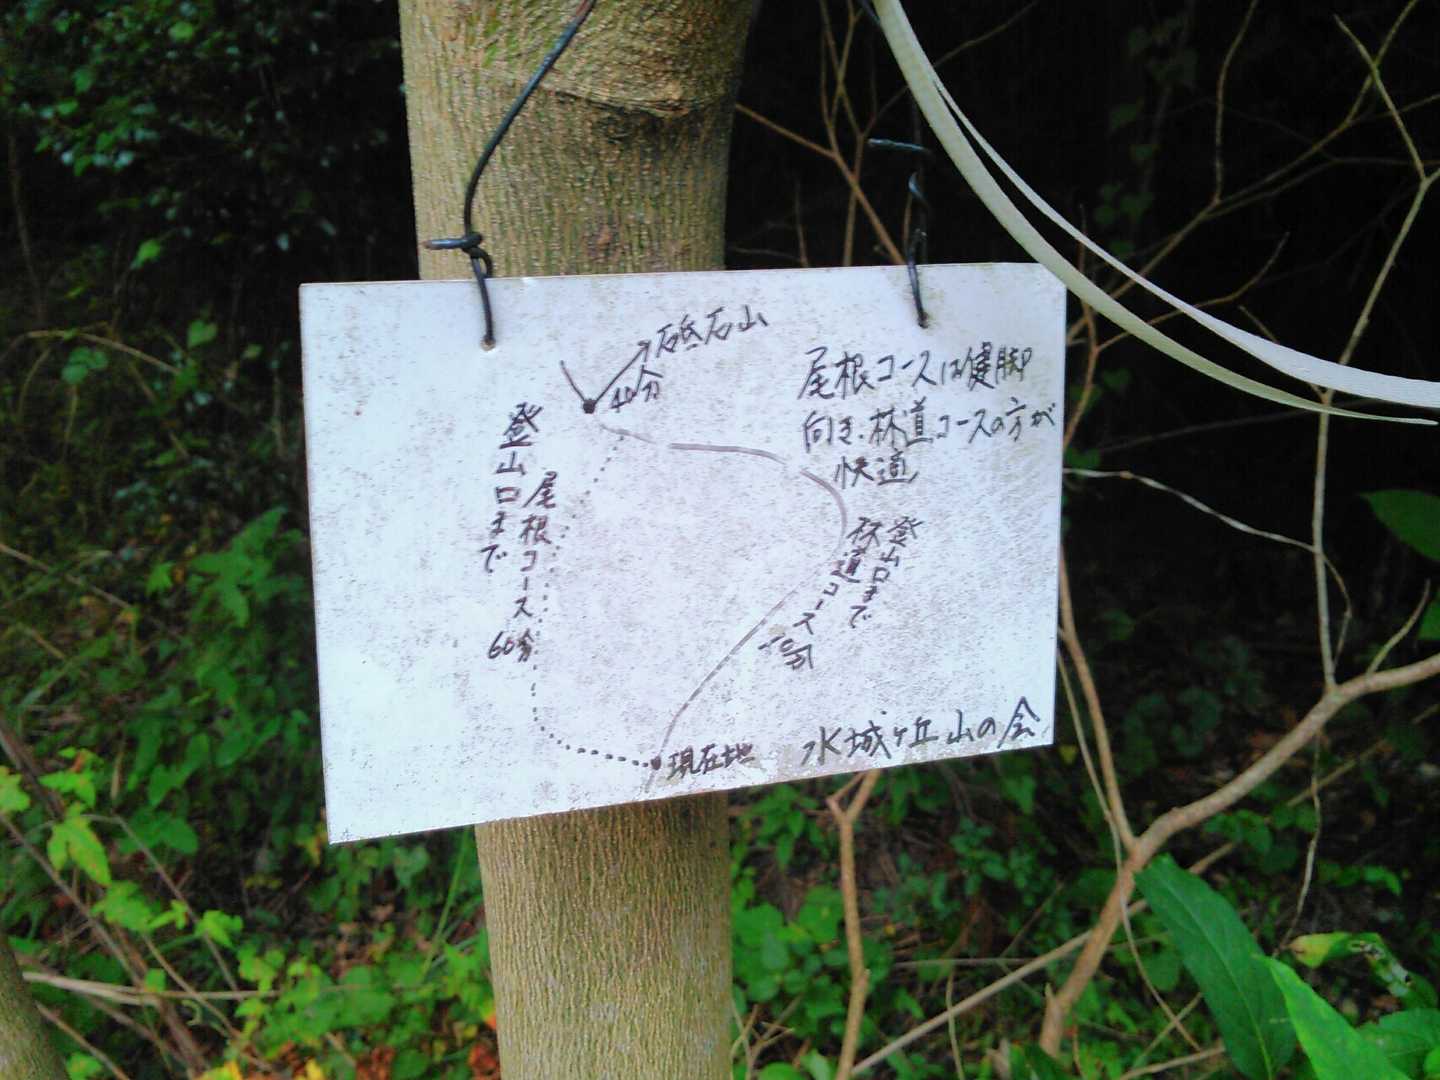 砥石山
40分
尾根コースは健脚
向き.林道コースの方が
快適
登山口まで
尾根コース 60分
登山口まで
林道コース
現在地
水城ヶ丘山の会